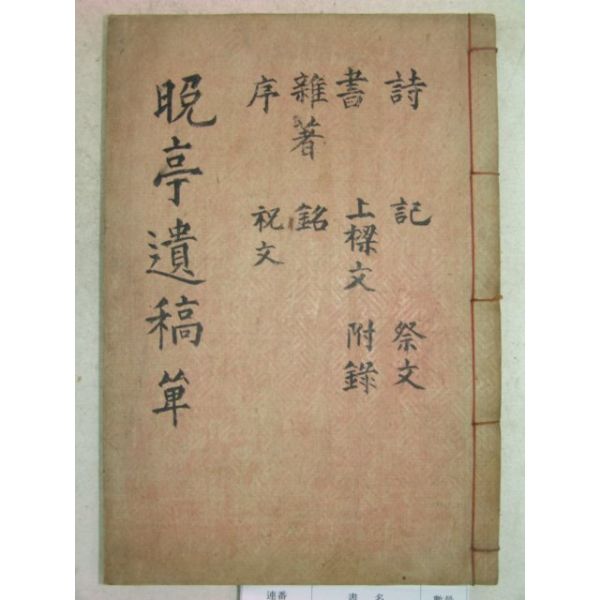 詩 記 祭文
書 上樑文 附錄
雜著 銘
序 祝文
晩亭遺稿 單
連番 書 名